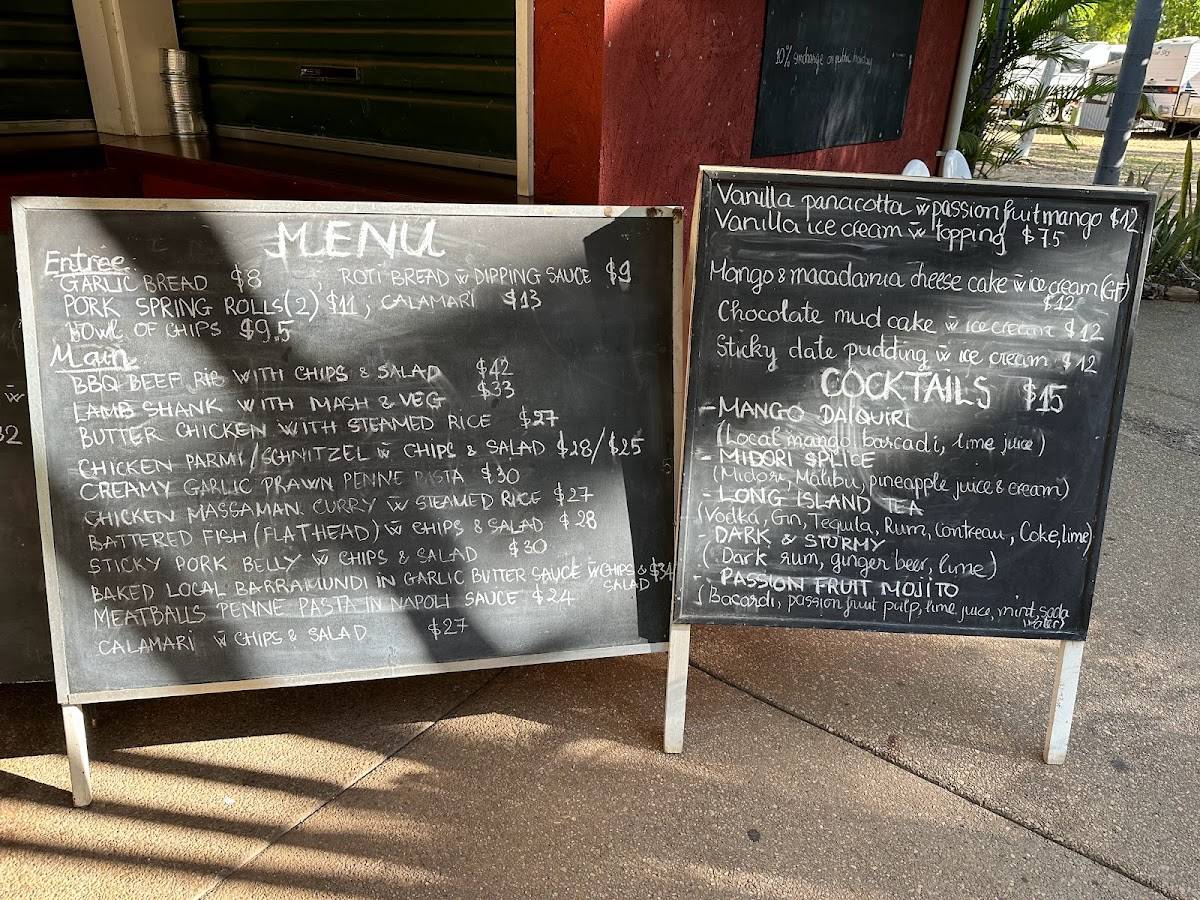 10% surcharge on public holiday
MENU
Entrée
GARLIC BREAD $8 ; ROTI BREAD w̄ DIPPING SAUCE $9
PORK SPRING ROLLS(2) $11 ; CALAMARI $13
BOWL OF CHIPS $9.5
Main
BBQ BEEF RIB WITH CHIPS & SALAD $42
LAMB SHANK WITH MASH & VEG $33
BUTTER CHICKEN WITH STEAMED RICE $27
CHICKEN PARMI/SCHNITZEL w̄ CHIPS & SALAD $28/$25
CREAMY GARLIC PRAWN PENNE PASTA $30
CHICKEN MASSAMAN CURRY w̄ STEAMED RICE $27
BATTERED FISH (FLATHEAD) w̄ CHIPS & SALAD $28
STICKY PORK BELLY w̄ CHIPS & SALAD $30
BAKED LOCAL BARRAMUNDI IN GARLIC BUTTER SAUCE w̄ CHIPS & $34
SALAD
MEATBALLS PENNE PASTA IN NAPOLI SAUCE $24
CALAMARI w̄ CHIPS & SALAD $27
Vanilla panacotta w̄ passion fruit mango $12
Vanilla ice cream w̄ topping $7.5
Mango & macadamia cheese cake w̄ ice cream (GF)
$12
Chocolate mud cake w̄ ice cream $12
Sticky date pudding w̄ ice cream $12
COCKTAILS $15
- MANGO DAIQUIRI
(Local mango, barcadi, lime juice)
- MIDORI SPLICE
(Midori, Malibu, pineapple juice & cream)
- LONG ISLAND TEA
(Vodka, Gin, Tequila, Rum, contreau, Coke, lime)
- DARK & STORMY
(Dark rum, ginger beer, lime)
- PASSION FRUIT MOJITO
(Bacardi, passion fruit pulp, lime juice, mint, soda
water)
w̄
32